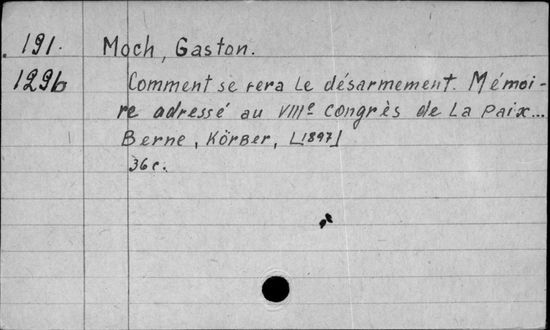 191. Moch, Gaston.
1296 Comment se fera le désarmement. Mémoi-
re adressé au VIIIe congrès de la paix...
Berne, Körber, [1897]
36 c.